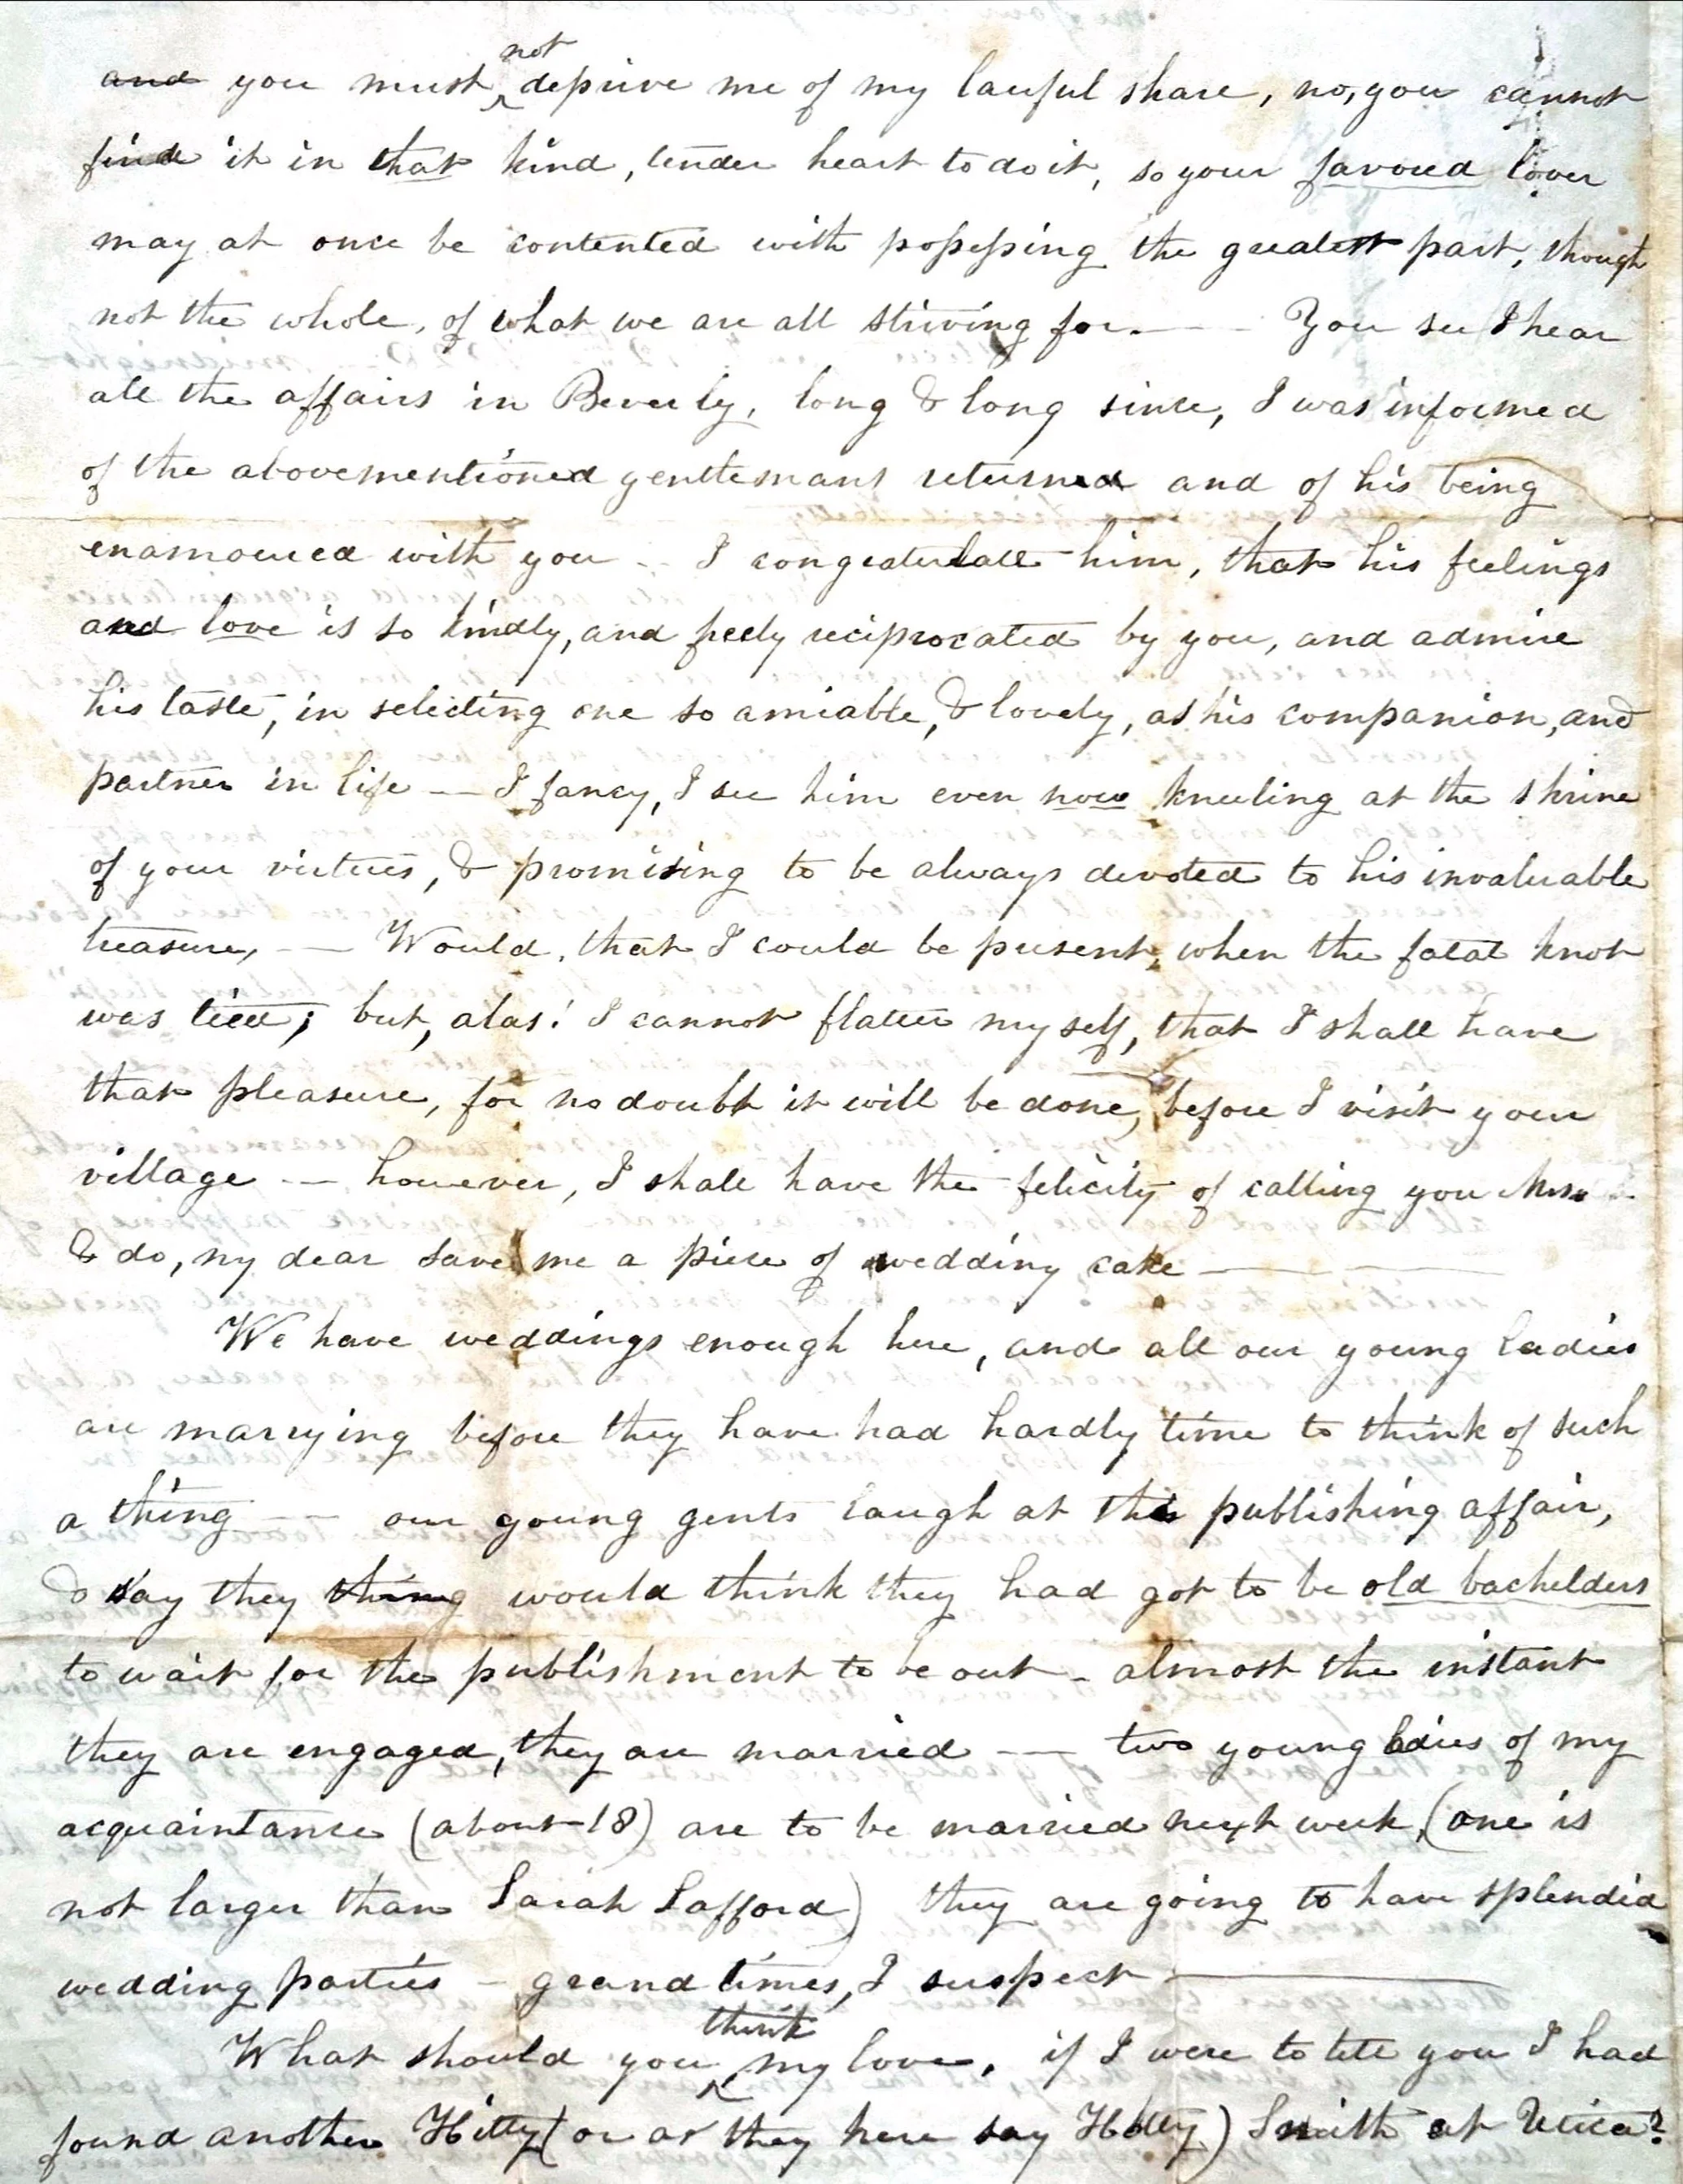 and you must not deprive me of my lawful share, no, you cannot
find it in that kind, tender heart to do it, so your favoured lover
may at once be contented with possessing the greatest part, though
not the whole, of what we are all striving for. — You see I hear
all the affairs in Beverly, long & long since, I was informed
of the abovementioned gentlemans returned and of his being
enamoured with you — I congratulate him, that his feelings
and love is so kindly, and freely reciprocated by you, and admire
his taste, in selecting one so amiable, & lovely, as his companion, and
partner in life — I fancy, I see him even now kneeling at the shrine
of your virtues, & promising to be always devoted to his invaluable
treasure, — Would, that I could be present, when the fatal knot
was tied; but, alas! I cannot flatter myself, that I shall have
that pleasure, for no doubt it will be done, before I visit your
village — however, I shall have the felicity of calling you Mrs
& do, my dear save me a piece of wedding cake —
We have weddings enough here, and all our young ladies
are marrying before they have had hardly time to think of such
a thing — our young gents laugh at this publishing affair,
& say they thing would think they had got to be old bachelders
to wait for the publishment to be out - almost the instant
they are engaged, they are married — two young ladies of my
acquaintance (about 18) are to be married next week, (one is
not larger than Sarah Safford) they are going to have splendid
wedding parties - grand times, I suspect —
What should you think my love, if I were to tell you I had
found another Hitty (or as they here say Hetty) Smith at Utica?